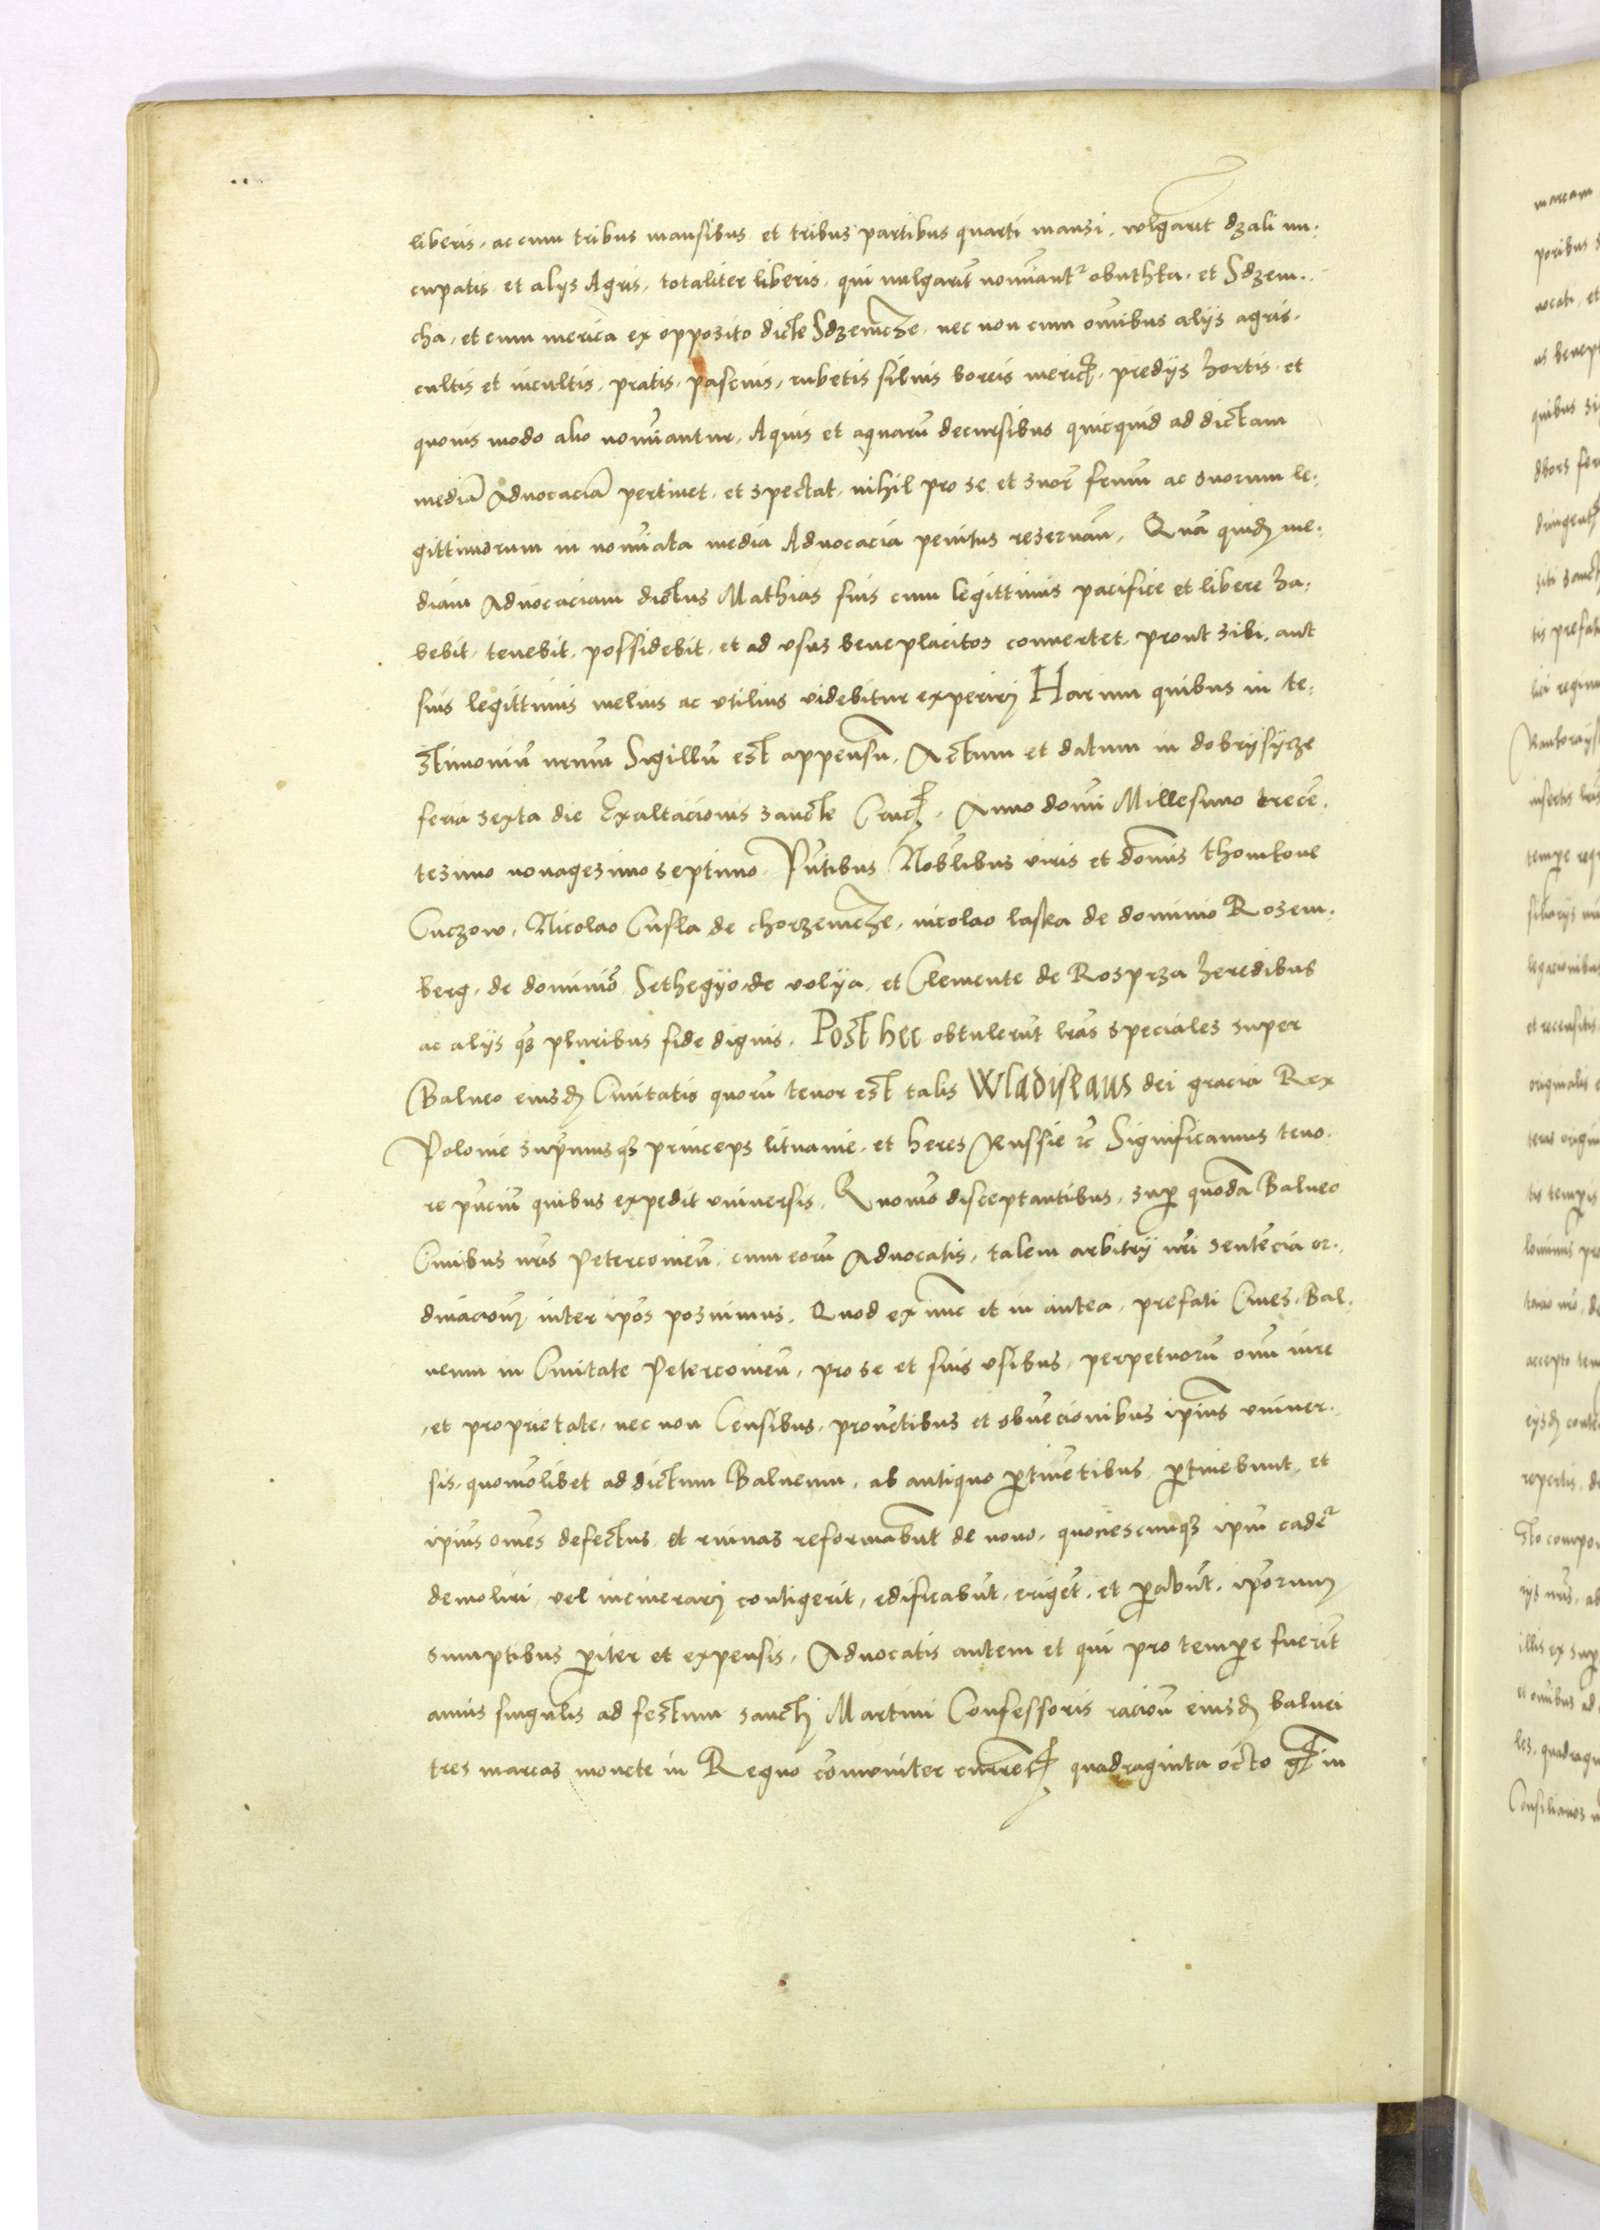 liberis, ac cum tribus mansibus et tribus partibus quarti mansi, wlgarit dzali nu-
cupatis et alijs Agris, totaliter liberis, qui vulgarit̃ noīant² obuthka, et Sdzem-
cha, et cum merica ex opposito dicte Sdzemcze, nec non cum om̃ibus alijs agris,
cultis et incultis, pratis, pascuis, rubetis siluis boreis mericꝭ, predijs hortis et
quouis modo alio noīantur, Aquis et aquarū decursibus quicquid ad dictam
mediā Aduocaciā pertinet, et spectat, nihil pro se et suoꝝ frūm ac suorum le-
gittimorum in noīata media Aduocacia penitus reseruan̄, Quā quidē me-
diam Aduocaciam dictus Mathias suis cum legittimis pacifice et libere ha-
bebit, tenebit, possidebit, et ad vsus beneplacitos conuertet, prout sibi, aut
suis legittimis melius ac vtilius videbitur experirij Harum quibus in te-
stimoniū nr̄um Sigillū est appensū, Actum et datum in dobrysycze
feria sexta die Exaltacionis sancte Crucꝭ, Anno domī Millesimo trecē-
tesimo nonagesimo septimo Pn̄tibus Nobilibus viris et domīs thomkone
Cuczow, Nicolao Cusla de chorzemcze, nicolao laska de dominio Rosem-
berg, de dominio Sethegyo de volya, et Clemente de Rosprza heredibus
ac alijs qꝫ pluribus fide dignis, Post hec obtulerūt lr̄as speciales super
Balneo eiusdē Ciuitatis quorū tenor est talis Wladislaus dei gracia Rex
Polonie supr̄musqꝫ princeps lituanie, et heres Russie ꝛc̄ Significamus teno-
re pn̄ciū quibus expedit vniuersis, Quomō disceptantibus, suꝑ quodā Balneo
Ciuibus nr̄is Peterconien̄, cum eorū Aduocatis, talem arbitrij nr̄i sentēciā or-
dinacionē inter ip̄os posuimus, Quod ex nūc et in antea, prefati Ciues, Bal-
neum in Ciuitate Peterconien̄, pro se et suis vsibus, perpetuorū om̄ iure
et proprietate, nec non Censibus, prouētibus et obuēcionibus ip̄ius vniuer-
sis, quomōlibet ad dictum Balneum, ab antiquo ꝑtinētibus ꝑtinebunt, et
ip̄ius om̄es defectus et ruinas reformabūt de nouo, quociescunqꝫ ip̄m cadē²
demoliri, vel incinerarj contigerit, edificabūt, erigēt, et ꝑabūt, ip̄orum
sumptibus ꝑiter et expensis, Aduocatis autem et qui pro tempꝑe fuerīt
annis singulis ad festum sanctj Martini Confessoris racioīe eiusdē balnei
tres marcas monete in Regno cōmuniter currētꝭ quadraginta octo gꝭ in